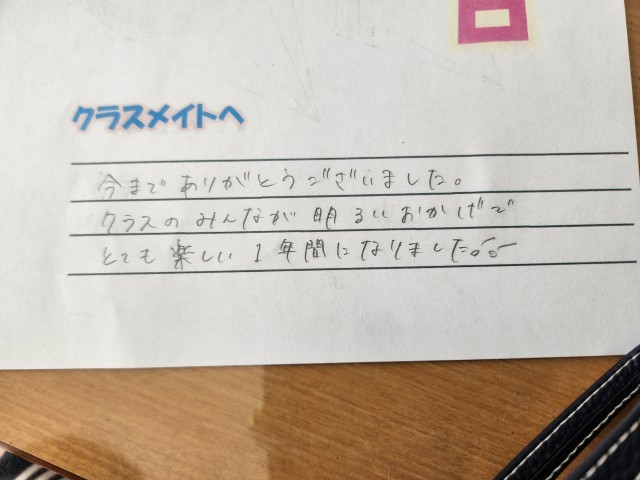 クラスメイトへ
今までありがとうございました。
クラスのみんなが明るいおかげで
とても楽しい1年間になりました。